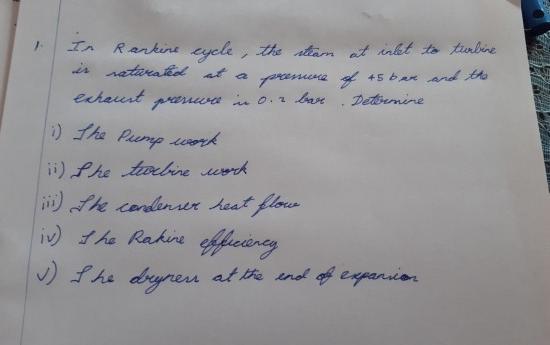 1. In Rankine cycle, the steam at inlet to turbine
is saturated at a pressure of 45 bar and the
exhaust pressure is 0.2 bar. Determine
i) The Pump work
ii) The turbine work
iii) The condenser heat flow
iv) The Rakine efficiency
v) The dryness at the end of expansion